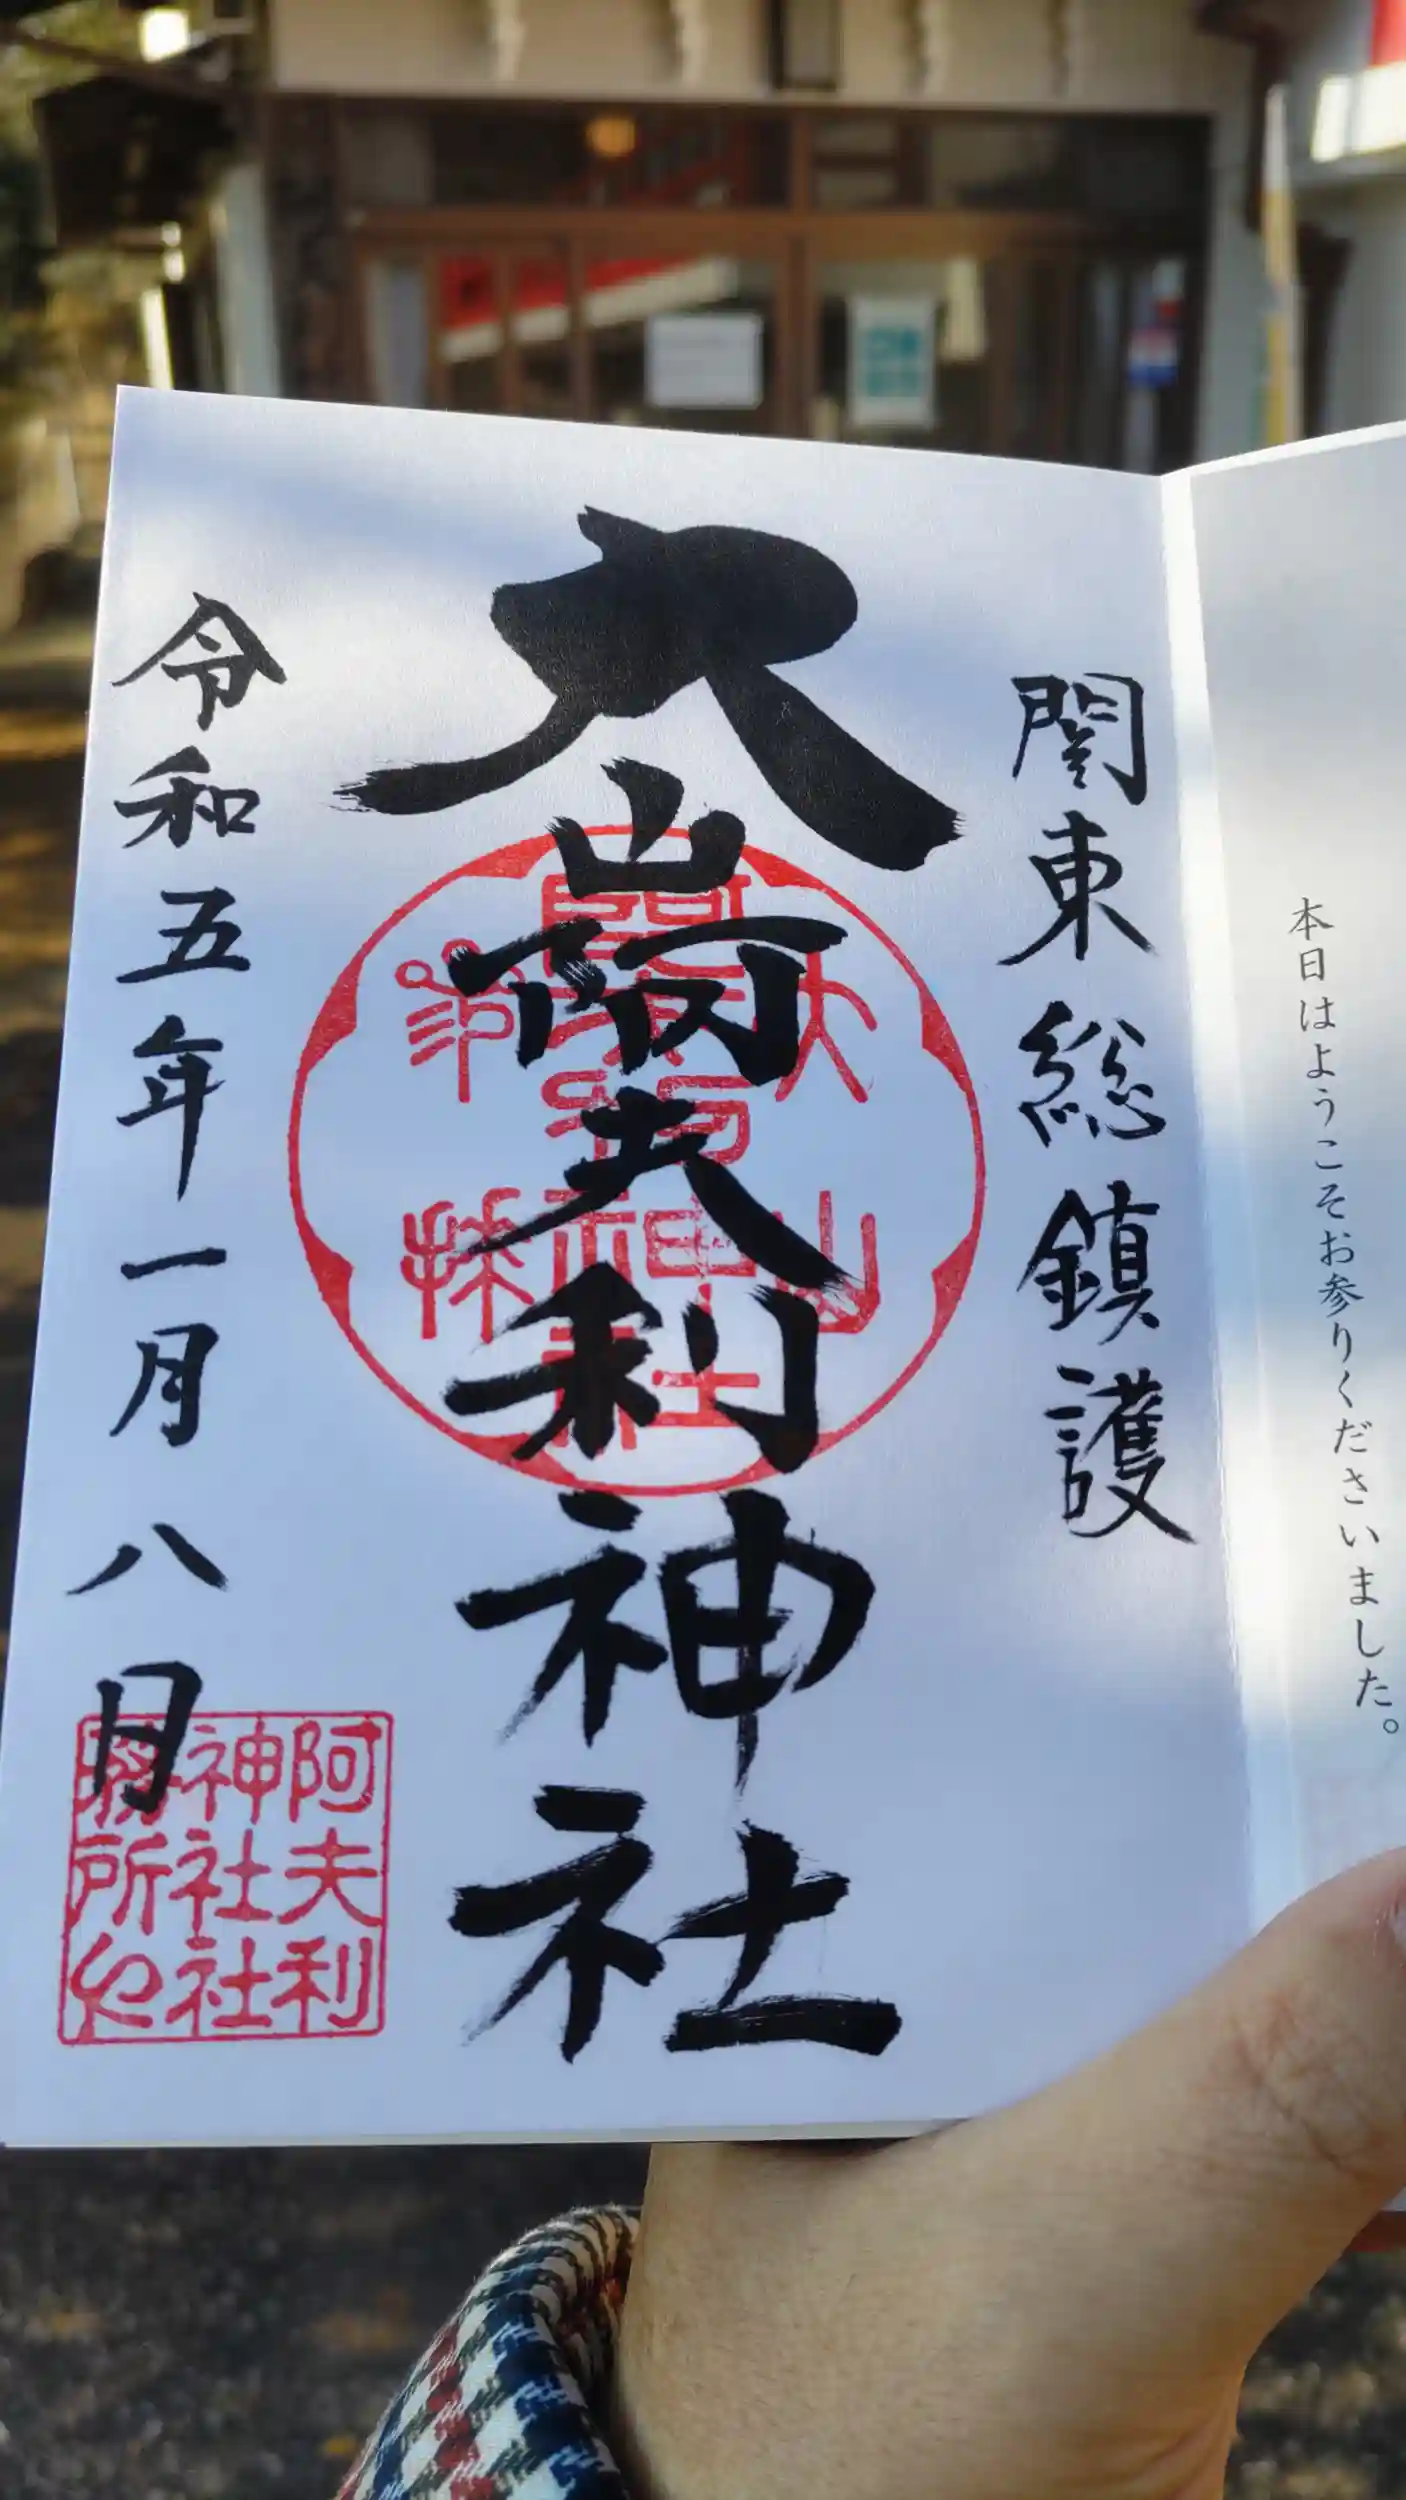 本日はようこそお参りくださいました。
関東総鎮護
大山阿夫利神社
令和五年一月八日
阿夫利
神社社
務所